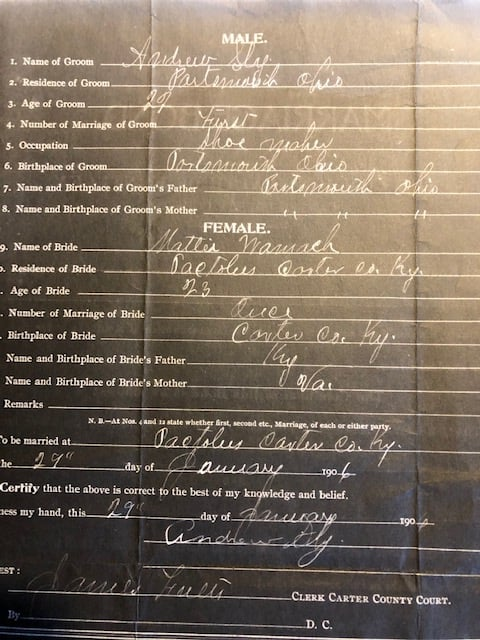 MALE.
1. Name of Groom Andrew Sly
2. Residence of Groom Portsmouth Ohio
3. Age of Groom 29
4. Number of Marriage of Groom First
5. Occupation Shoe maker
6. Birthplace of Groom Portsmouth Ohio
7. Name and Birthplace of Groom's Father Portsmouth Ohio
8. Name and Birthplace of Groom's Mother " " "
FEMALE.
9. Name of Bride Mattie
. Residence of Bride Pactolus Carter Co. Ky.
. Age of Bride 23
. Number of Marriage of Bride Once
. Birthplace of Bride Carter Co. Ky.
Name and Birthplace of Bride's Father Ky
Name and Birthplace of Bride's Mother Va.
Remarks
N. B.—At Nos. 4 and 12 state whether first, second etc., Marriage, of each or either party.
To be married at Pactolus Carter Co. Ky.
he 29" day of January 1906
Certify that the above is correct to the best of my knowledge and belief.
ness my hand, this 29" day of January 190
Andrew Sly
EST:
James
CLERK CARTER COUNTY COURT.
By D. C.